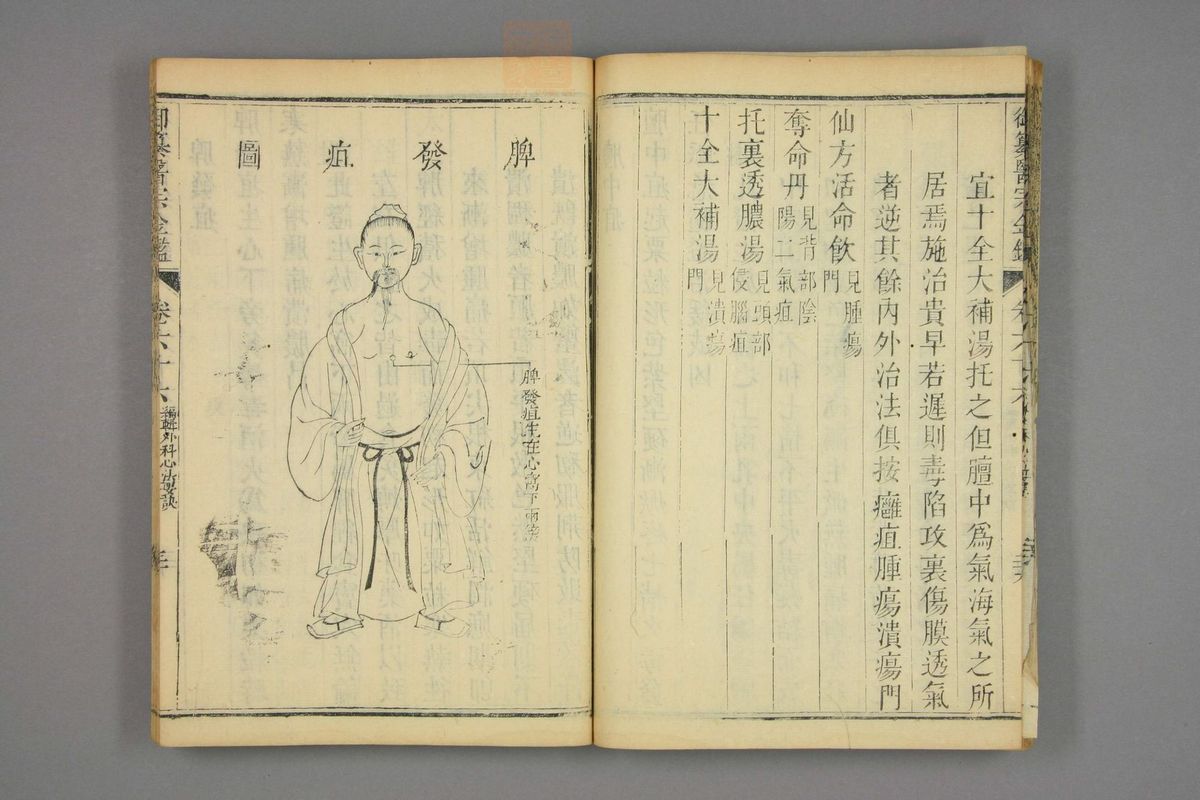 宜十全大補湯托之但膻中爲氣海氣之所
居焉施治貴早若遲則毒陷攻裏傷膜透氣
者逆其餘內外治法俱按癰疽腫瘍潰瘍門
仙方活命飲 見腫瘍門
奪命丹 見背部陰陽二氣疽
托裏透膿湯 見頭部侵腦疽
十全大補湯 見潰瘍門
脾發疽圖
脾發疽生在心窩下兩旁
御纂醫宗金鑑
卷六十六
編輯外科心法要訣